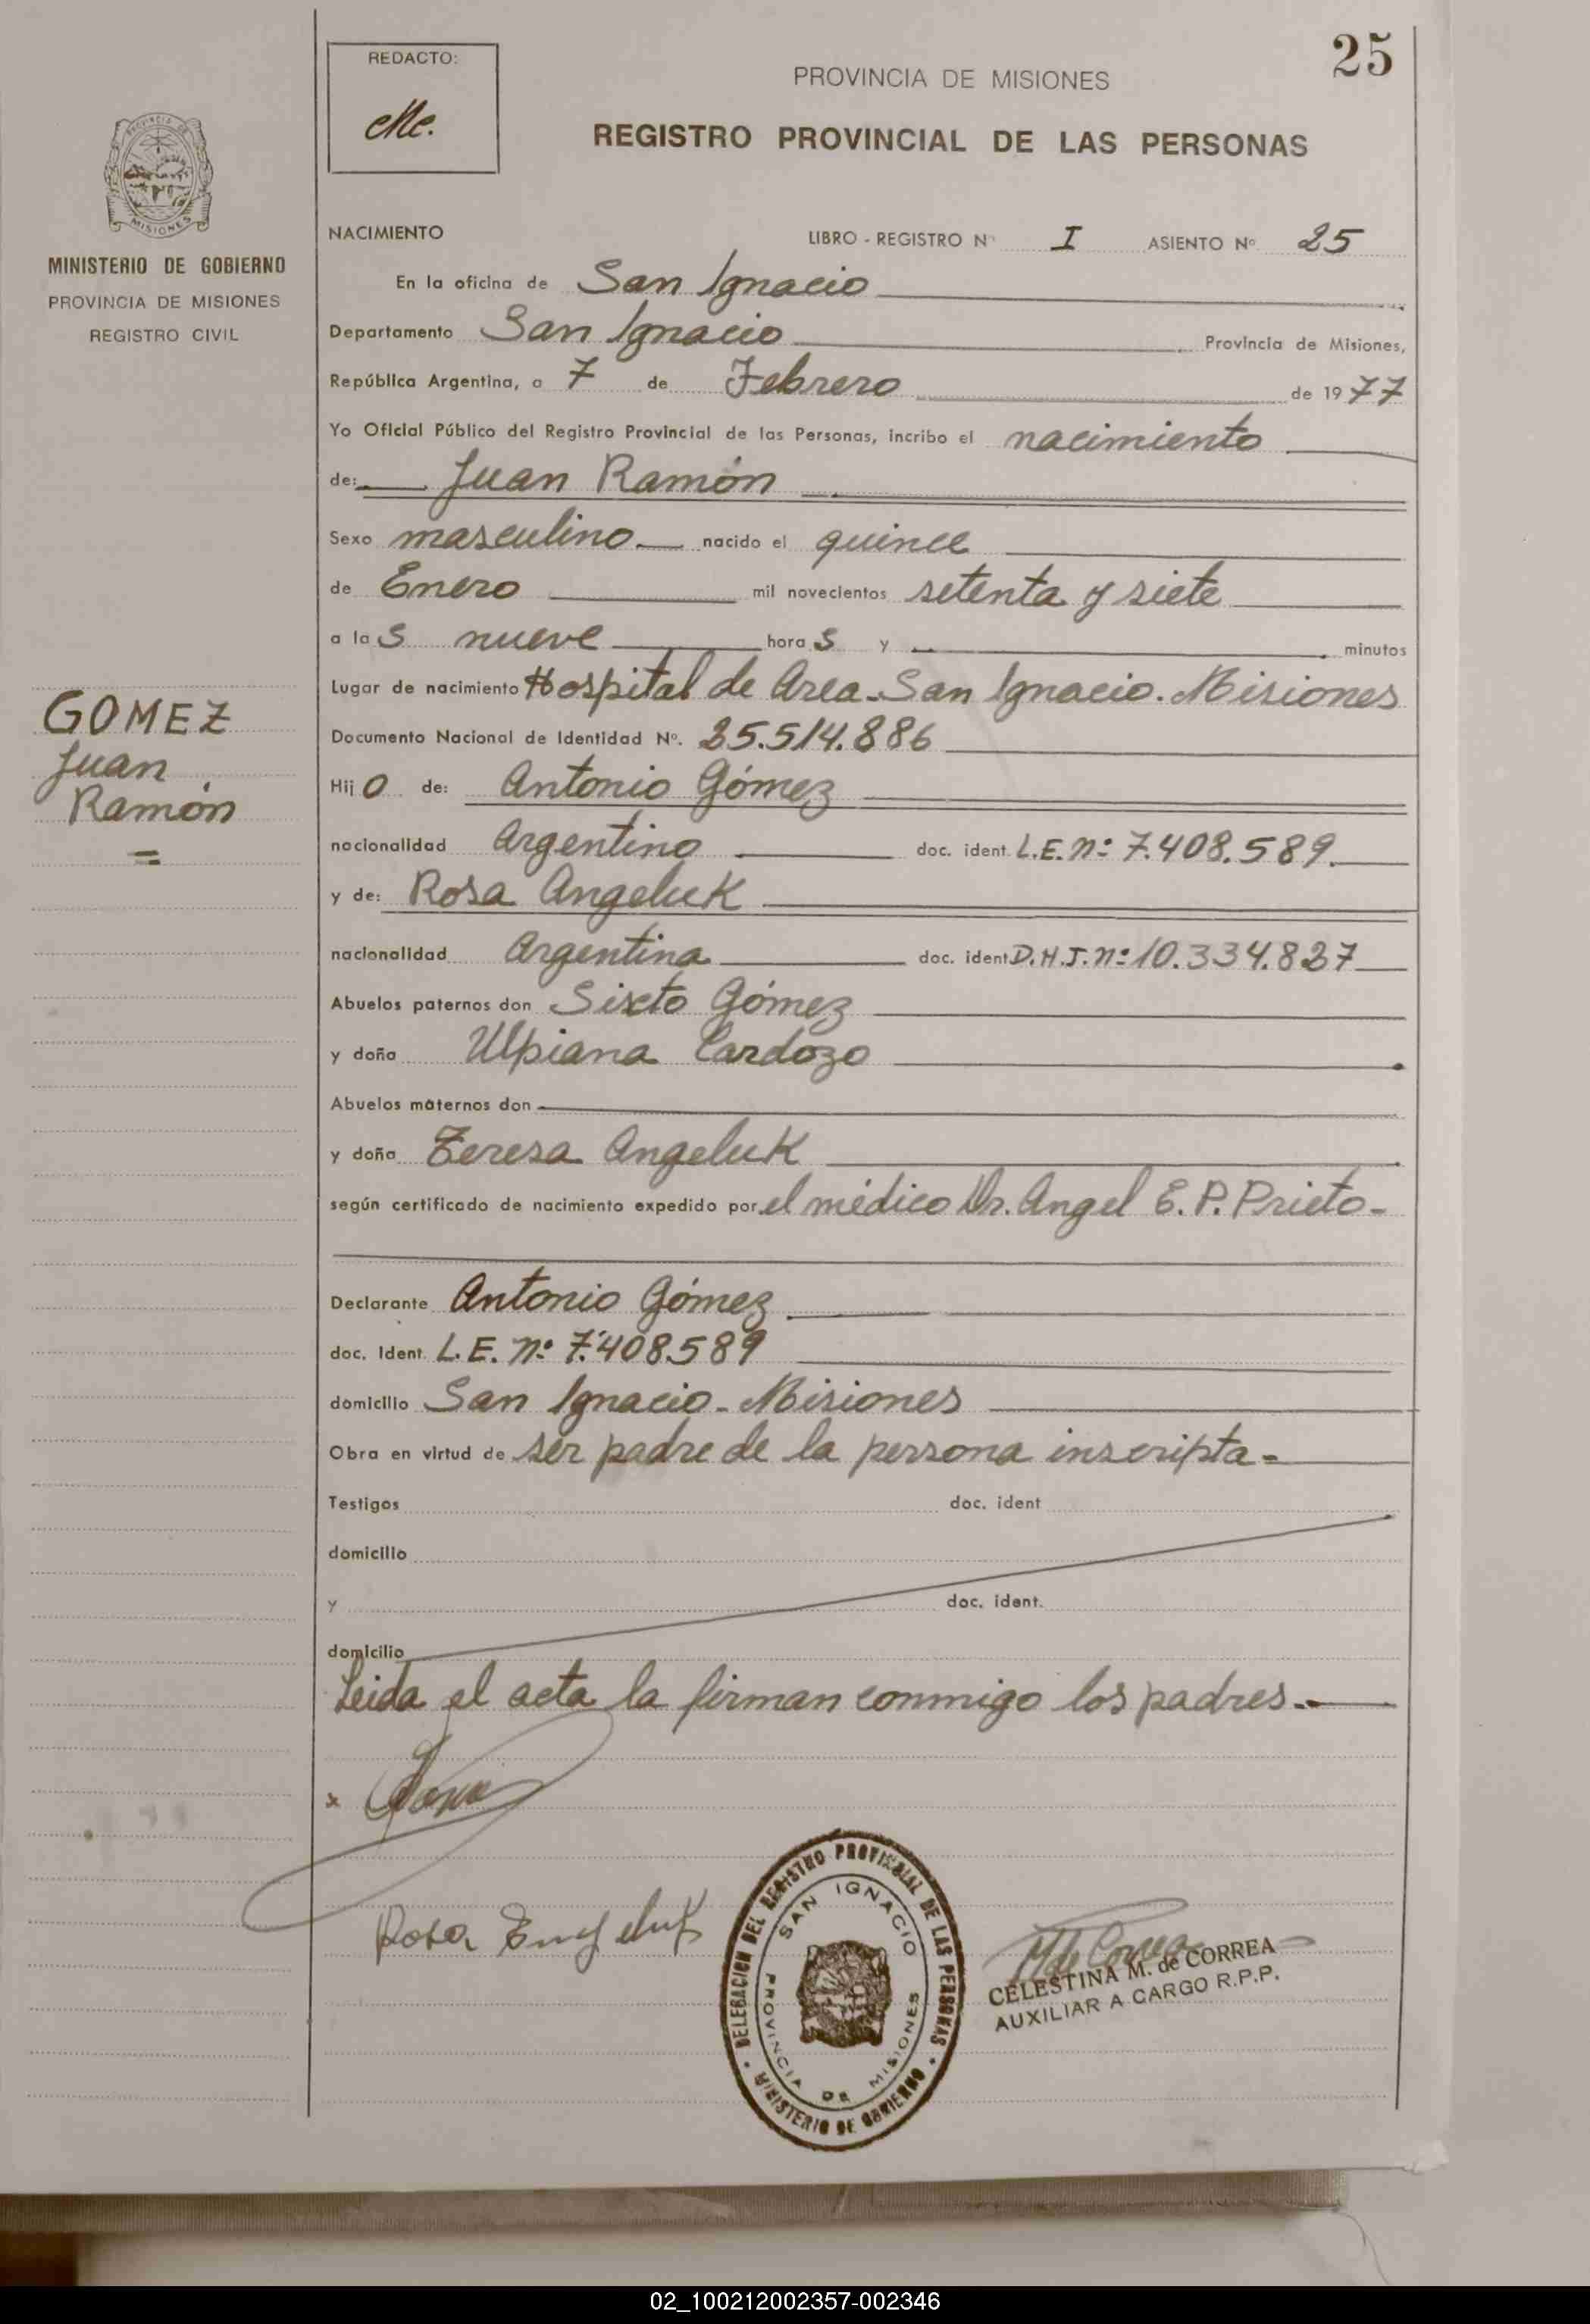 25
REDACTO:
Mc.
PROVINCIA DE MISIONES
REGISTRO PROVINCIAL DE LAS PERSONAS
PROVINCIA DE
MISIONES
MINISTERIO DE GOBIERNO
PROVINCIA DE MISIONES
REGISTRO CIVIL
NACIMIENTO LIBRO - REGISTRO Nº I ASIENTO Nº 25
En la oficina de San Ignacio
Departamento San Ignacio Provincia de Misiones,
República Argentina, a 7 de Febrero de 1977
Yo Oficial Público del Registro Provincial de las Personas, incribo el nacimiento
de: Juan Ramón
Sexo masculino nacido el quince
de Enero mil novecientos setenta y siete
a las nueve horas y minutos
Lugar de nacimiento Hospital de Area - San Ignacio. Misiones
GOMEZ
Juan
Ramón
Documento Nacional de Identidad Nº. 25.514.886
Hijo de: Antonio Gómez
nacionalidad Argentino doc. ident. L.E. nº 7.408.589.
y de: Rosa Angeluk
nacionalidad Argentina doc. ident D.N.I. nº 10.334.827
Abuelos paternos don Sixto Gómez
y doña Ulpiana Cardozo
Abuelos maternos don
y doña Teresa Angeluk
según certificado de nacimiento expedido por el médico Dr. Angel E. P. Prieto-
Declarante Antonio Gómez
doc. Ident. L.E. nº 7.408.589
domicilio San Ignacio - Misiones
Obra en virtud de ser padre de la persona inscripta-
Testigos doc. ident
domicilio
y doc. ident.
domicilio
Leida el acta la firman conmigo los padres.-
x
Rosa Engeluk
DELEGACION DEL REGISTRO PROVINCIAL DE LAS PERSONAS
MINISTERIO DE GOBIERNO
SAN IGNACIO
PROVINCIA DE MISIONES
M de Correa
CELESTINA M. de CORREA
AUXILIAR A CARGO R.P.P.
02_100212002357-002346